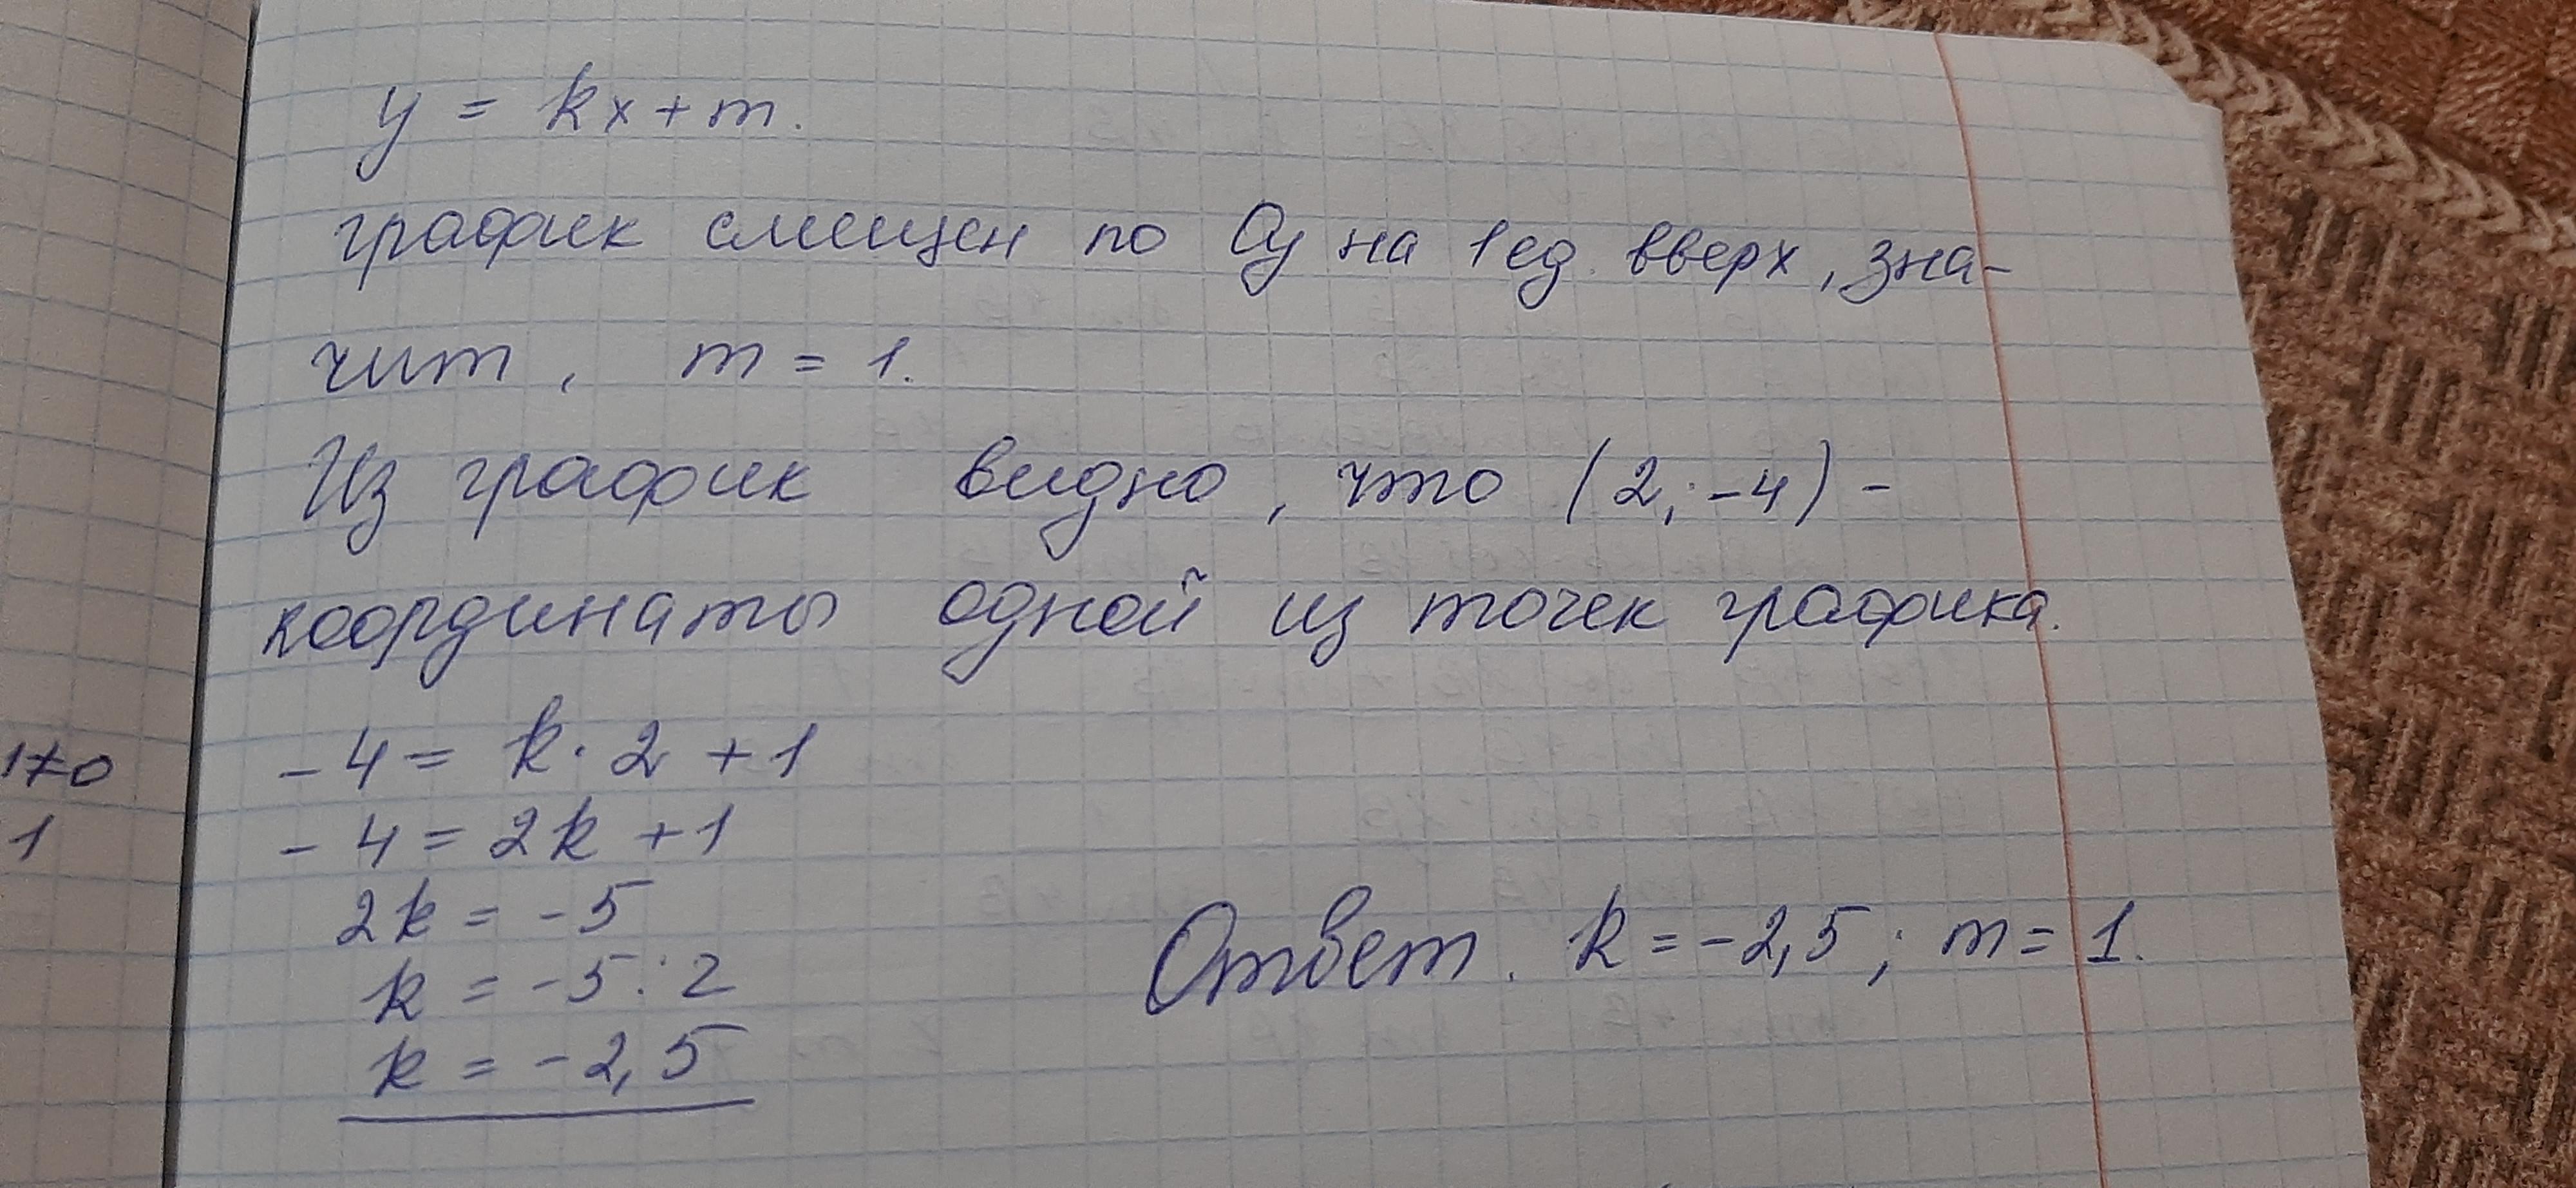 y = kx + m.
график смещен по Oy на 1 ед. вверх, зна-
чит, m = 1.
Из график видно, что (2; -4) -
координаты одной из точек графика.
1≠0
- 4 = k · 2 + 1
1
- 4 = 2k + 1
2k = -5
k = -5 : 2
k = -2,5
Ответ. k = -2,5 ; m = 1.